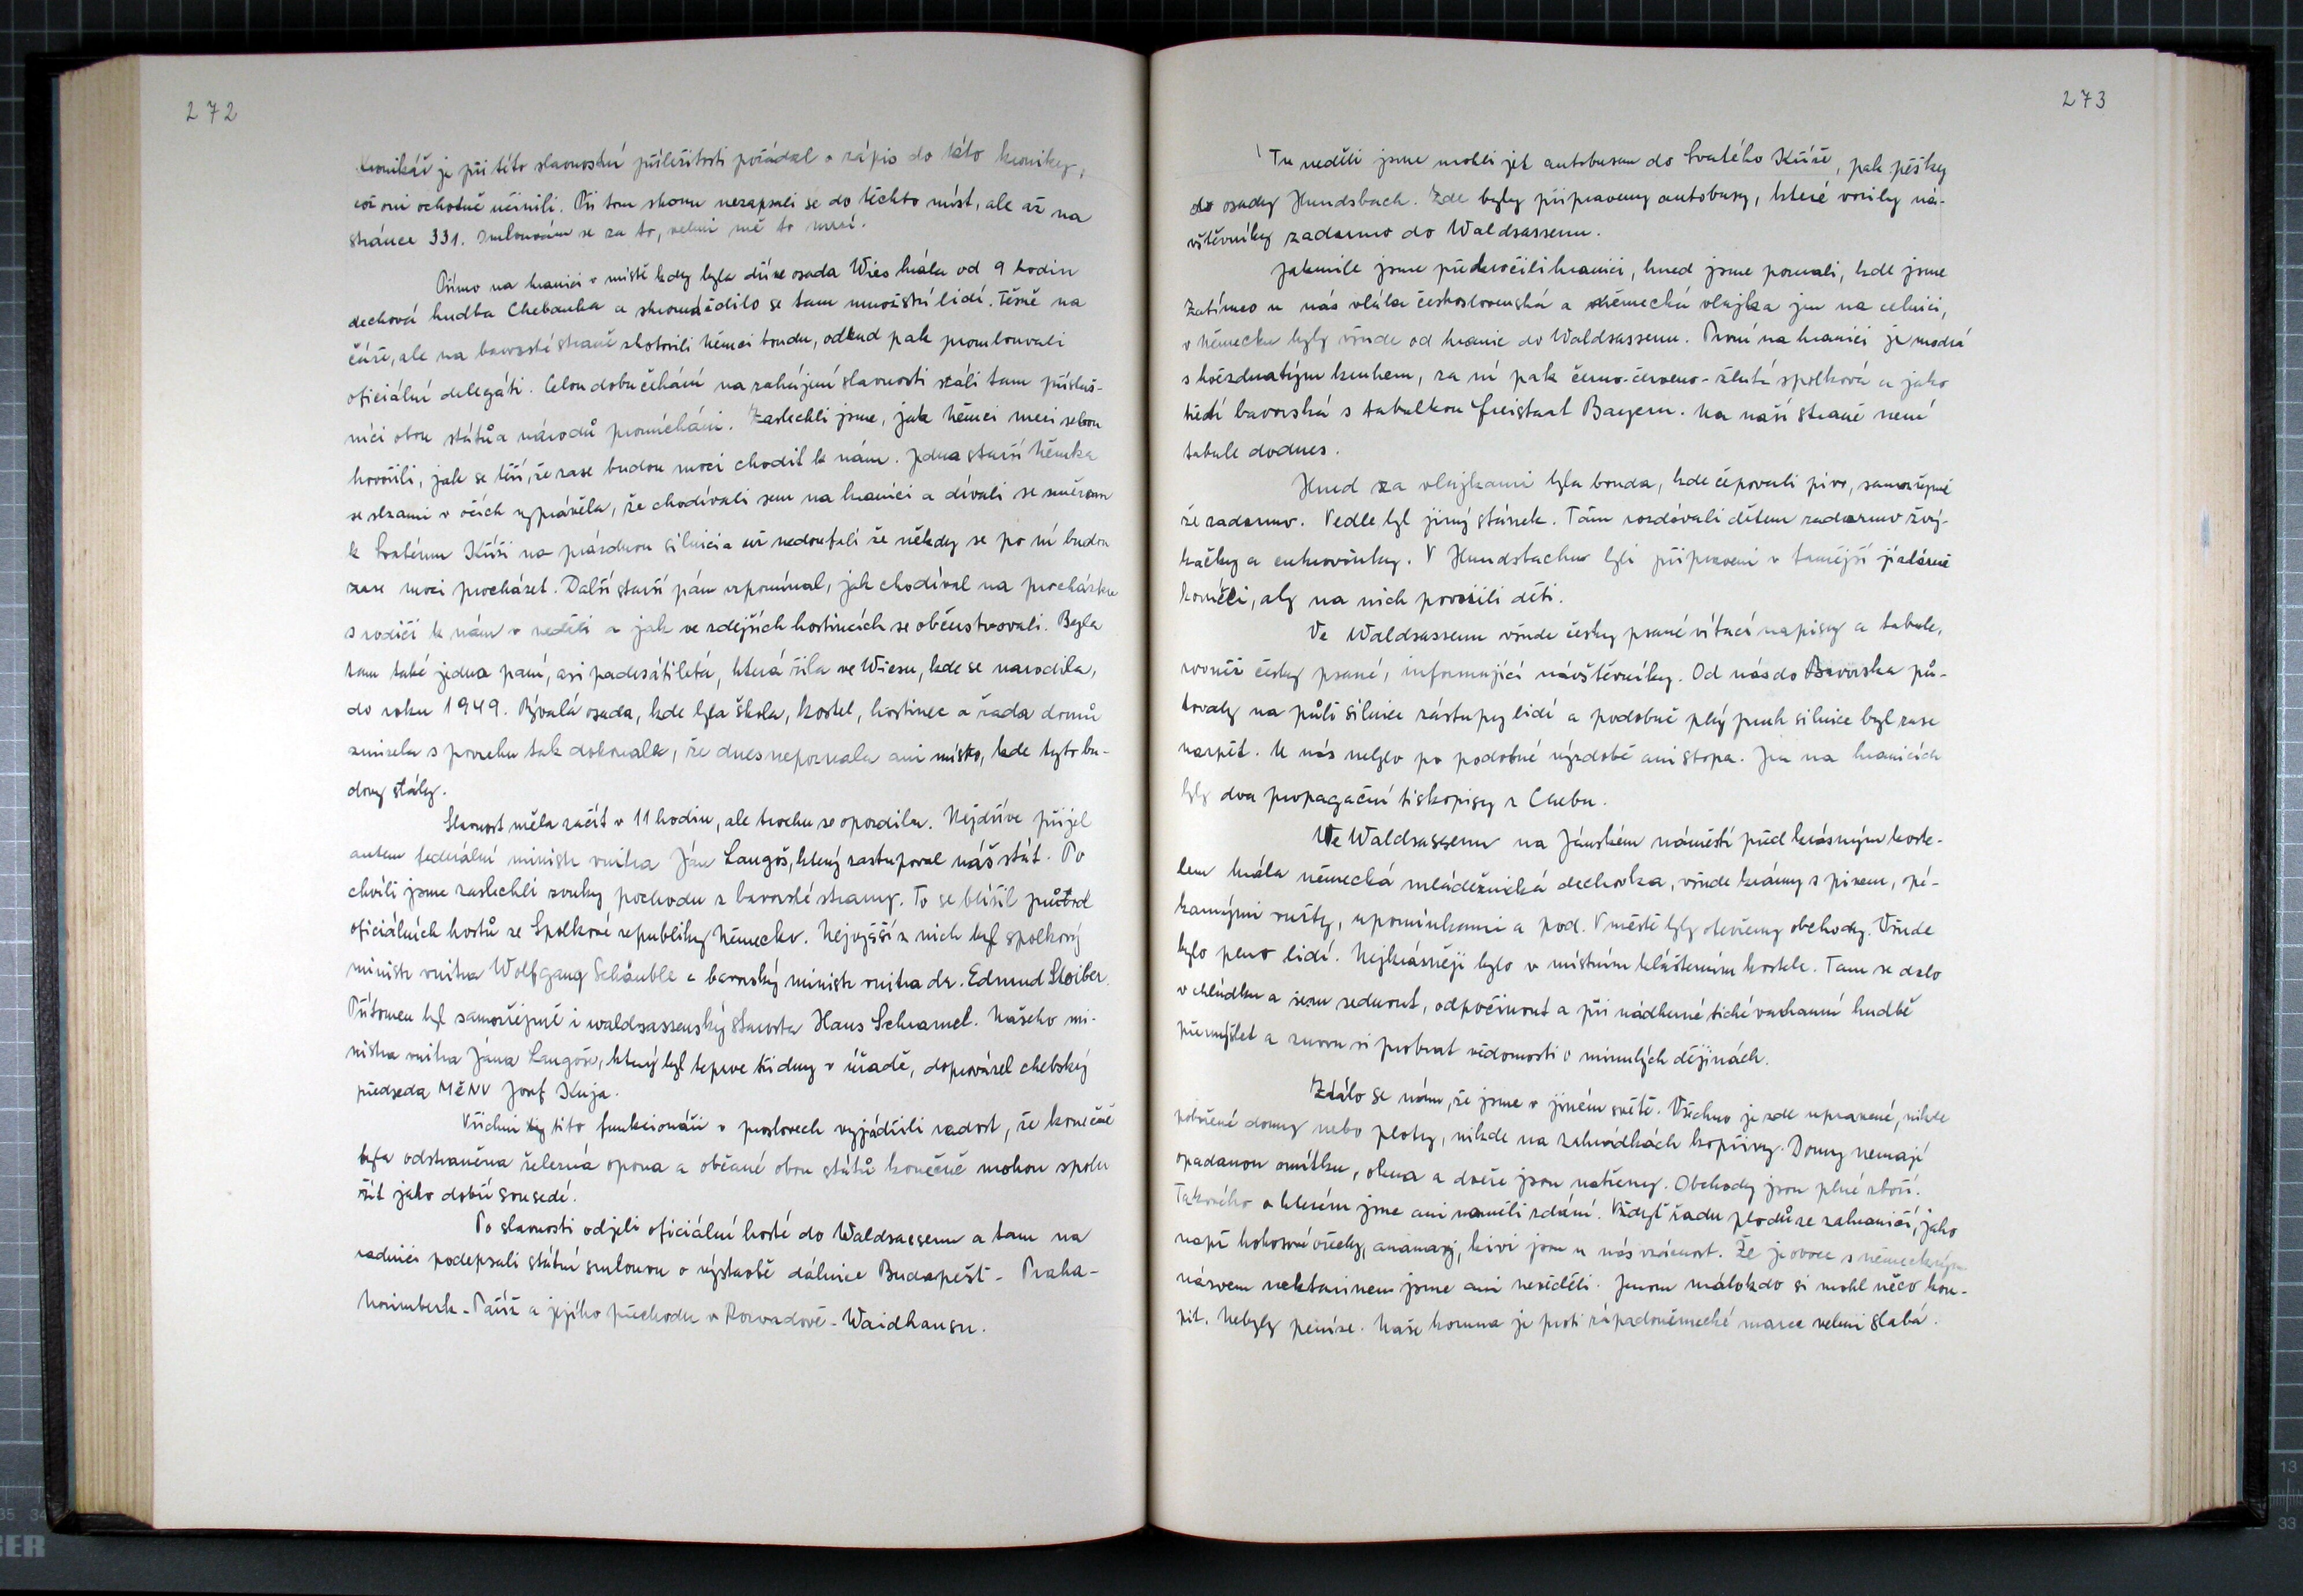 272
Kronikář je při této slavnostní příležitosti požádal o zápis do této kroniky,
což oni ochotně učinili. Při tom shonu nezapsali se do těchto míst, ale až na
stránce 331. Omlouvám se za to, velmi mě to mrzí.
Přímo na hranici v místě kdy byla dříve osada Wies hrála od 9 hodin
dechová hudba Chebanka a shromáždilo se tam množství lidí. Těsně na
čáře, ale na bavorské straně zhotovili Němci boudu, odkud pak promlouvali
oficiální delegáti. Celou dobu čekání na zahájení slavnosti stáli tam přísluš-
níci obou států a národů promícháni. Zaslechli jsme, jak Němci mezi sebou
hovořili, jak se těší, že zase budou moci chodit k nám. Jedna starší Němka
se slzami v očích vyprávěla, že chodívali sem na hranici a dívali se směrem
k Svatému Kříži na prázdnou silnici a už nedoufali že někdy se po ní budou
zase moci procházet. Další starší pán vzpomínal, jak chodíval na procházku
s rodiči k nám v neděli a jak ve zdejších hostincích se občerstvovali. Byla
tam také jedna paní, asi padesátiletá, která žila ve Wiesu, kde se narodila,
do roku 1949. Bývalá osada, kde byla škola, kostel, hostinec a řada domů
zmizela s povrchu tak dokonale, že dnes nepoznala ani místo, kde tyto bu-
dovy stály.
Slavnost měla začít v 11 hodin, ale trochu se opozdila. Nejdříve přijel
autem federální ministr vnitra Ján Langoš, který zastupoval náš stát. Po
chvíli jsme zaslechli zvuky pochodu z bavorské strany. To se blížil průvod
oficiálních hostů ze Spolkové republiky Německo. Nejvyšší z nich byl spolkový
ministr vnitra Wolfgang Schäuble a bavorský ministr vnitra dr. Edmund Stoiber.
Přítomen byl samozřejmě i waldsassenský starosta Hans Schramel. Našeho mi-
nistra vnitra Jána Langoše, který byl teprve tři dny v úřadě, doprovázel chebský
předseda MěNV Josef Kuja.
Všichni tito funkcionáři v proslovech vyjádřili radost, že konečně
byla odstraněna železná opona a občané obou států konečně mohou spolu
žít jako dobří sousedé.
Po slavnosti odjeli oficiální hosté do Waldsassenu a tam na
radnici podepsali státní smlouvu o výstavbě dálnice Budapešť - Praha -
Norimberk - Paříž a jejího přechodu v Rozvadově - Waidhausu.
273
Tu neděli jsme mohli jet autobusem do Svatého Kříže, pak pěšky
do osady Hundsbach. Zde byly připraveny autobusy, které vozily ná-
vštěvníky zadarmo do Waldsassenu.
Jakmile jsme překročili hranici, hned jsme poznali, kde jsme
Zatímco u nás vlála československá a německá vlajka jen na celnici,
v Německu byly všude od hranic do Waldsassenu. První na hranici je modrá
s hvězdnatým kruhem, za ní pak černo-červeno-žlutá spolková a jako
třetí bavorská s tabulkou Freistaat Bayern. Na naší straně není
tabule dodnes.
Hned za vlajkami byla bouda, kde čepovali pivo, samozřejmě
že zadarmo. Vedle byl jiný stánek. Tam rozdávali dětem zadarmo žvý-
kačky a cukrovinky. V Hundsbachu byli připraveni v tamější jízdárně
koníčci, aby na nich povozili děti.
Ve Waldsassenu všude česky psané vítací nápisy a tabule,
rovněž česky psané, informující návštěvníky. Od nás do Bavorska pu-
tovaly na půli silnice zástupy lidí a podobně plný pruh silnice byl zase
nazpět. U nás nebylo po podobné výzdobě ani stopa. Jen na hranicích
byly dva propagační tiskopisy z Chebu.
Ve Waldsassenu na Jánském náměstí před krásným koste-
lem hrála německá mládežnická dechovka, všude krámy s pivem, opé-
kanými vuřty, upomínkami a pod. V městě byly otevřeny obchody. Všude
bylo plno lidí. Nejkrásněji bylo v místním klášterním kostele. Tam se dalo
v chládku a šeru sednout, odpočinout a při nádherné tiché varhanní hudbě
přemýšlet a znovu si probrat vědomosti o minulých dějinách.
Zdálo se nám, že jsme v jiném světě. Všechno je zde upravené, nikde
pobořené domy nebo ploty, nikde na zahrádkách kopřivy. Domy nemají
opadanou omítku, okna a dveře jsou natřeny. Obchody jsou plné zboží.
Takového o kterém jsme ani neměli zdání. Vždyť řadu plodů ze zahraničí, jako
např kokosové ořechy, ananasy, kivi jsou u nás vzácnost. Že je ovoce s německým
názvem nektarinem jsme ani nevěděli. Jenom málokdo si mohl něco kou-
pit. Nebyly peníze. Naše koruna je proti západoněmecké marce velmi slabá.